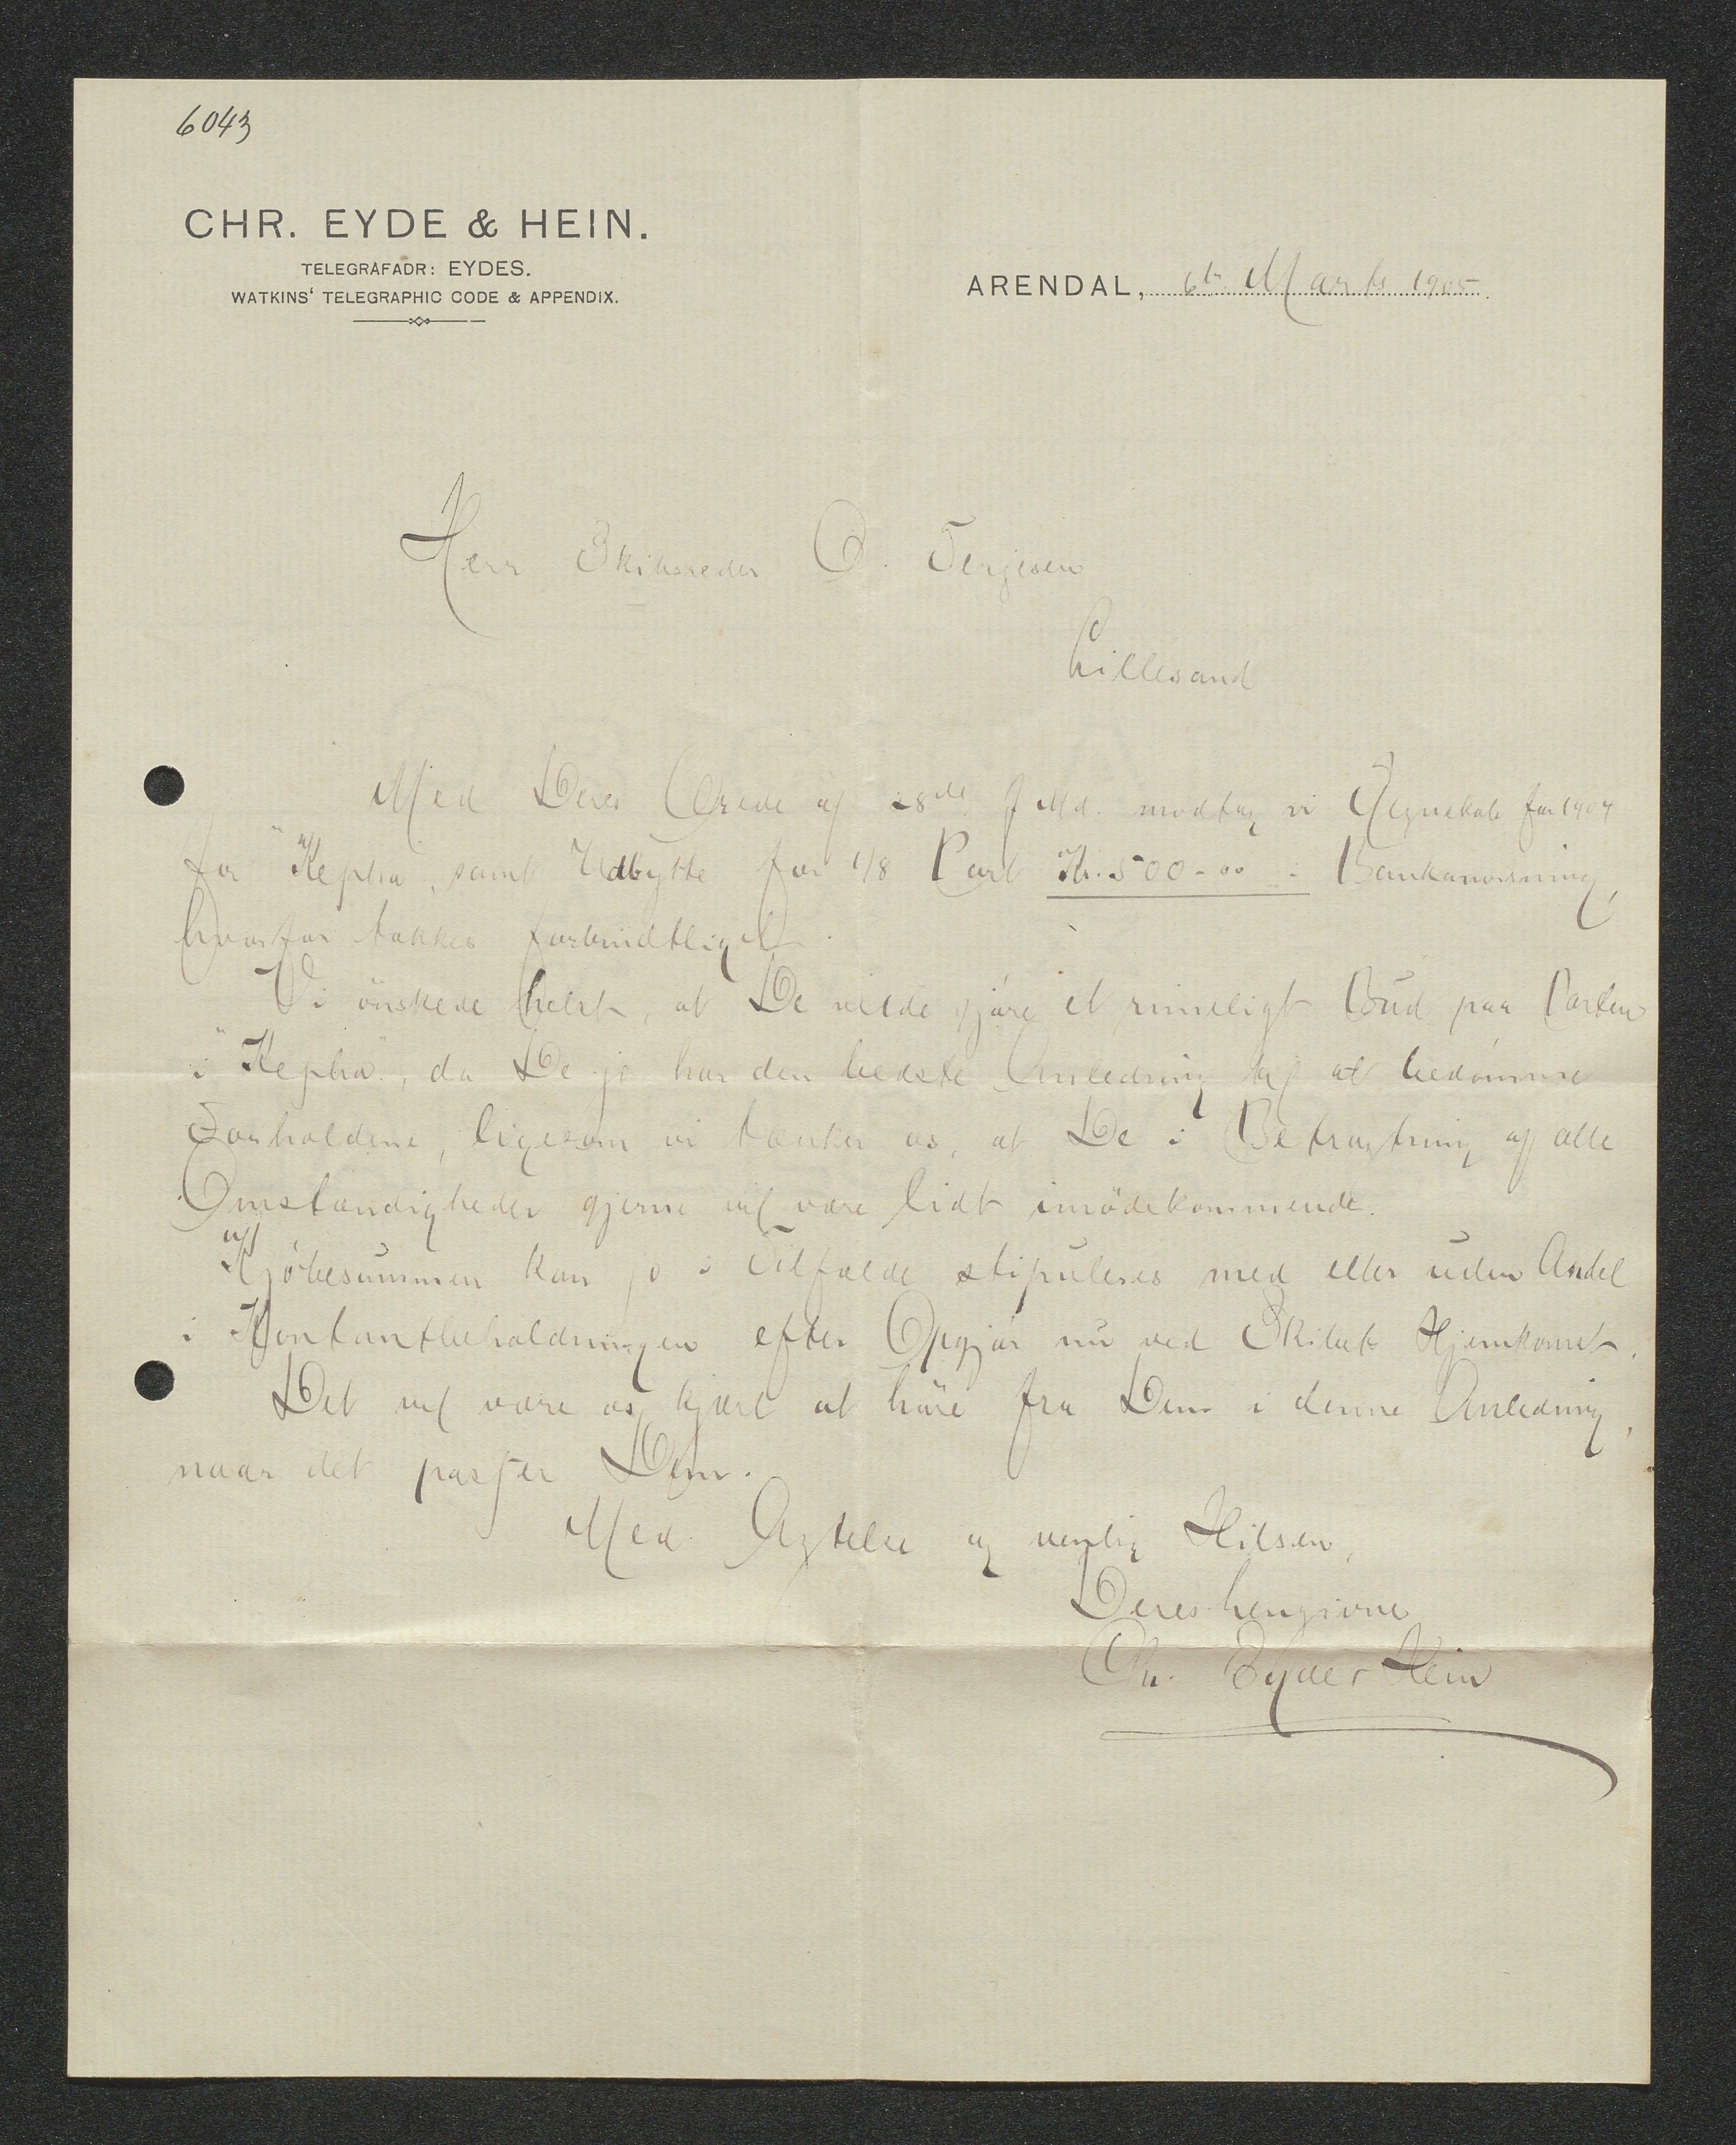 6043
CHR. EYDE & HEIN.
TELEGRAFADR: EYDES.
WATKINS' TELEGRAPHIC CODE & APPENDIX.
ARENDAL, 6te Marts 1905.
Herr Skibsreder O. Terjesen
Lillesand
Med Deres Ærede af 28de f Md. modtog vi Regnskab for 1904
for "Kepha", samt Udbytte for 1/8 Part Kr. 500-00 - Bankanvisning,
hvorfor takkes forbindtligst.
Vi önskede helst, at De vilde gjöre et rimeligt Bud paa Parten
i "Kepha", da De jo har den bedste Anledning til at bedömme
Forholdene, ligesom vi tænker os, at De i Betragtning af alle
Omstændigheder gjerne vil være lidt imödekommende.
Kjöbesummen kan jo i Tilfælde stipuleres med eller uden Andel
i Kontantbeholdningen efter Opgjör nu ved Skibets Hjemkomst.
Det vil være os kjært at höre fra Dem i denne Anledning,
naar det passer Dem.
Med Agtelse og venlig Hilsen,
Deres hengivne
Chr. Eyde & Hein